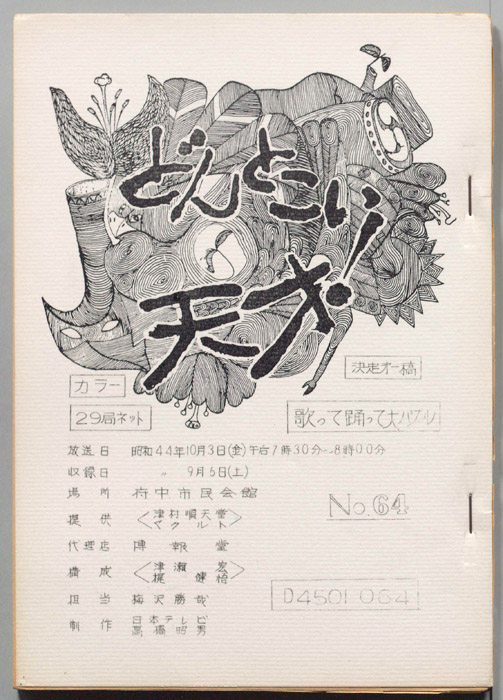 どんとこい!
天才
決定オ一稿
カラー
29局ネット
歌って踊って大パズル
放送日 昭和44年10月3日(金)午后7時30分~8時00分
収録日 〃 9月6日(土)
場所 府中市民会館
No.64
提供 <津村順天堂
ヤクルト>
代理店 博報堂
構成 <津瀬 宏
梶 健悟>
D4501064
担当 梅沢勝哉
制作 日本テレビ
高橋昭男